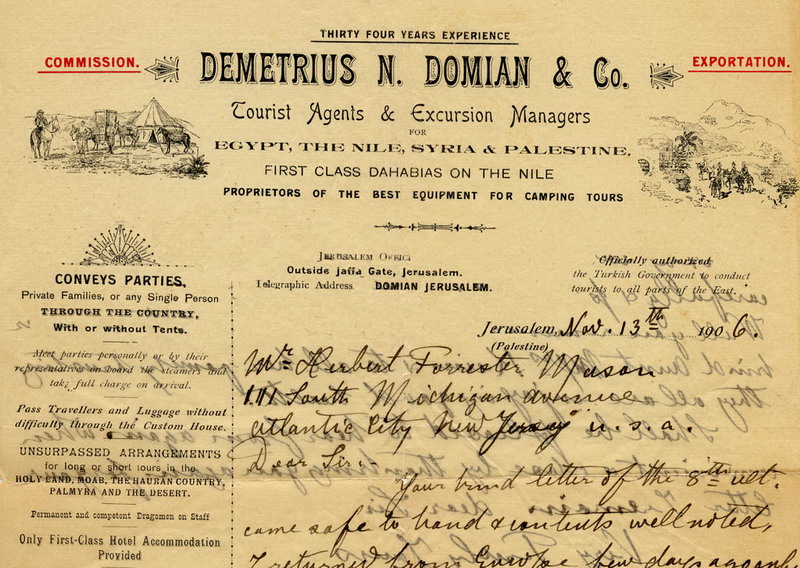 THIRTY FOUR YEARS EXPERIENCE
COMMISSION.
DEMETRIUS N. DOMIAN & Co.
EXPORTATION.
Tourist Agents & Excursion Managers
FOR
EGYPT, THE NILE, SYRIA & PALESTINE.
FIRST CLASS DAHABIAS ON THE NILE
PROPRIETORS OF THE BEST EQUIPMENT FOR CAMPING TOURS
JERUSALEM OFFICE
Outside Jaffa Gate, Jerusalem.
Telegraphic Address DOMIAN JERUSALEM.
Officially authorized
the Turkish Government to conduct
tourists to all parts of the East.
CONVEYS PARTIES,
Private Families, or any Single Person
THROUGH THE COUNTRY,
With or without Tents.
Meet parties personally or by their
representatives on board the steamers and
take full charge on arrival.
Pass Travellers and Luggage without
difficulty through the Custom House.
UNSURPASSED ARRANGEMENTS
for long or short tours in the
HOLY LAND, MOAB, THE HAURAN COUNTRY,
PALMYRA AND THE DESERT.
Permanent and competent Dragomen on Staff
Only First-Class Hotel Accommodation
Provided
Jerusalem, Nov. 13th 1906.
(Palestine)
Mr. Herbert Forrester Mason
111 South Michigan avenue
atlantic City New Jersey u. s. a.
Dear Sir:-
Your kind letter of the 8th ult.
came safe to hand & contents well noted,
I returned from Europe few days ago